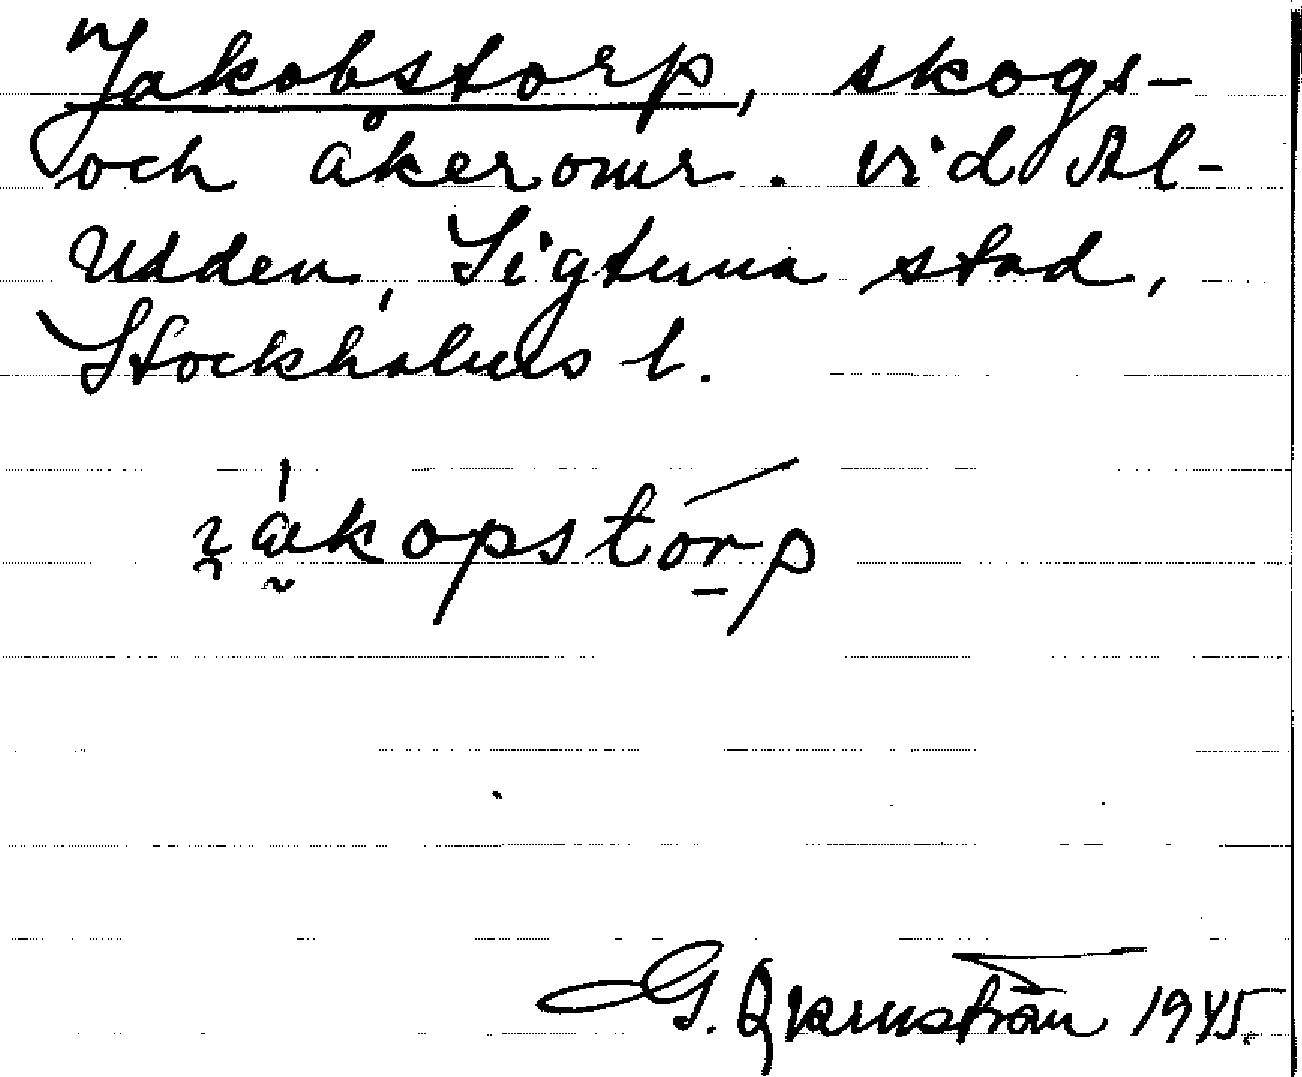 Jakobstorp, skogs-
och åkeromr. vid Al-
udden, Sigtuna stad,
Stockholms l.
jakopstorp
G. Qvarnström 1945.